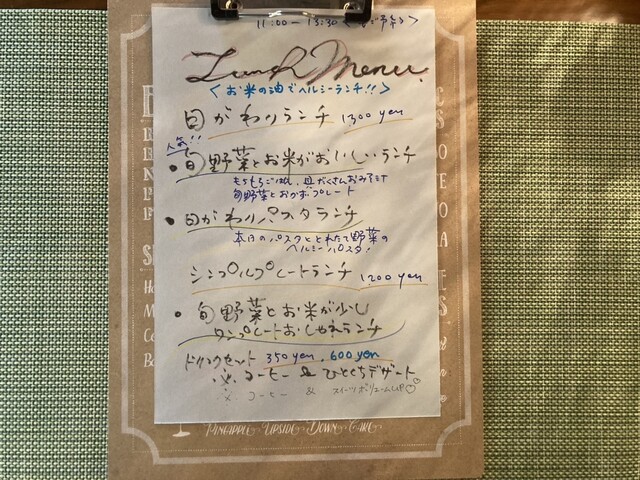 11:00－13:30
Lunch Menu
＜お米の油でヘルシーランチ!!＞
旬がわりランチ 1300 yen
人気!!
・旬野菜とお米がおいしいランチ
もちもちごはん、具だくさんおみそ汁
旬野菜とおかずプレート
・旬がわりパスタランチ
本日のパスタととれたて野菜の
ヘルシーパスタ!
シンプルプレートランチ 1200 yen
・旬野菜とお米が少し
ワンプレートおしゃれランチ
ドリンクセット 350 yen . 600 yen
※ コーヒー & ひとくちデザート
※ コーヒー & スイーツボリュームUP
PINEAPPLE UPSIDE DOWN CAKE